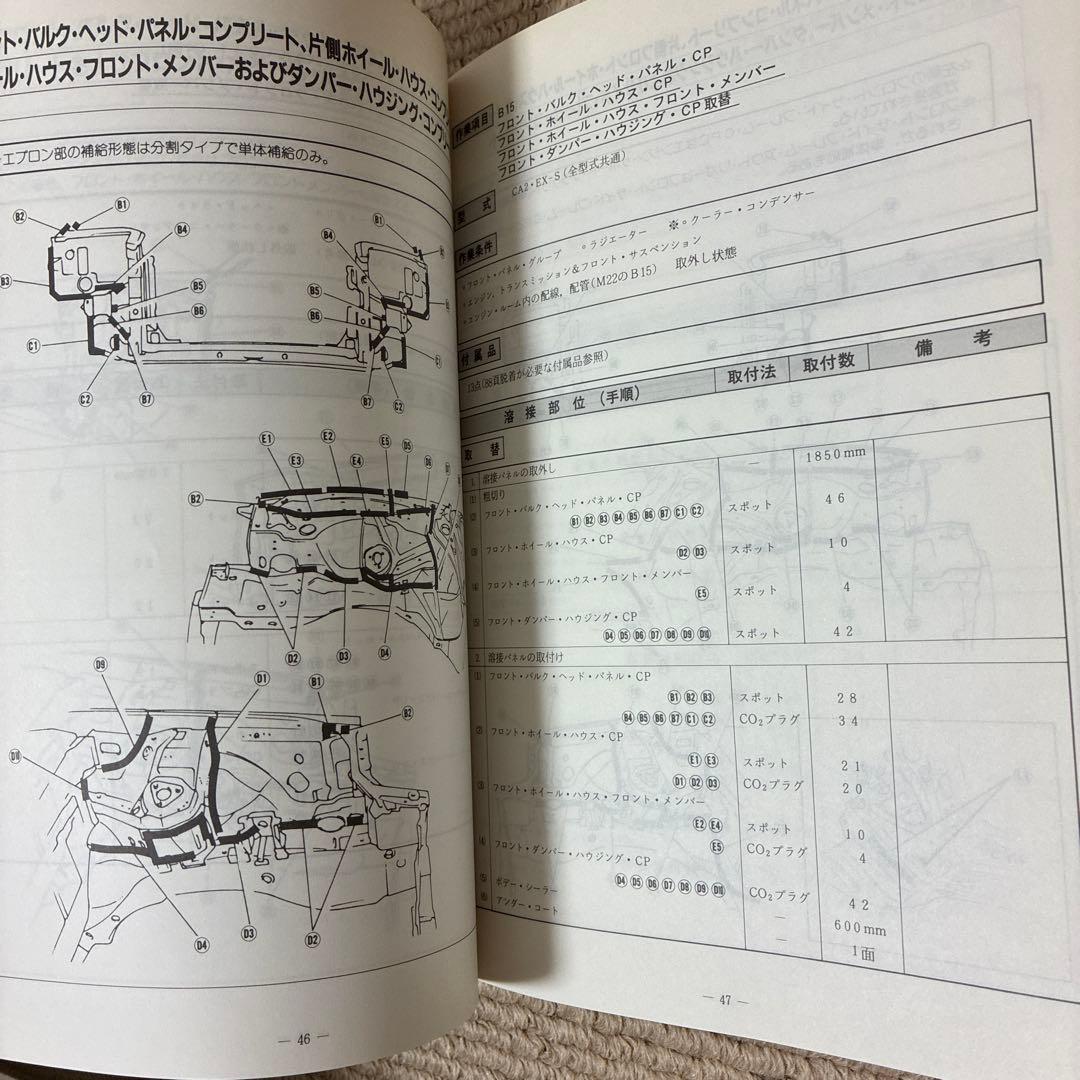 ント・バルク・ヘッド・パネル・コンプリート、片側ホイール・ハウス・コンプ
ール・ハウス・フロント・メンバーおよびダンパー・ハウジング・コンプリー
エプロン部の補給形態は分割タイプで単体補給のみ。
B2
B1
B4
B3
B5
B6
C1
C2
B7
B1
B4
B5
B6
C1
B7
C2
E1
E2
E3
E4
E5
D5
D6
B2
D2
D3
D4
D9
D1
B1
B2
D10
D4
D3
D2
— 46 —
作業項目
B15
フロント・バルク・ヘッド・パネル・CP
フロント・ホイール・ハウス・CP
フロント・ホイール・ハウス・フロント・メンバー
フロント・ダンパー・ハウジング・CP取替
型 式
CA2・EX-S(全型式共通)
作業条件
∘フロント・パネル・グループ ∘ラジエーター ※∘クーラー・コンデンサー
∘エンジン,トランスミッション&フロント・サスペンション
∘エンジン・ルーム内の配線,配管(M22のB15) 取外し状態
付属品
13点(88頁脱着が必要な付属品参照)
溶接部位(手順) 取付法 取付数 備考
取 替
1. 溶接パネルの取外し
(1) 粗切り — 1850mm
(2) フロント・バルク・ヘッド・パネル・CP
B1 B2 B3 B4 B5 B6 B7 C1 C2 スポット 46
(3) フロント・ホイール・ハウス・CP
D2 D3 スポット 10
(4) フロント・ホイール・ハウス・フロント・メンバー
E5 スポット 4
(5) フロント・ダンパー・ハウジング・CP
D4 D5 D6 D7 D8 D9 D10 スポット 42
2. 溶接パネルの取付け
(1) フロント・バルク・ヘッド・パネル・CP
B1 B2 B3 スポット 28
B4 B5 B6 B7 C1 C2 CO₂プラグ 34
(2) フロント・ホイール・ハウス・CP
E1 E3 スポット 21
D1 D2 D3 CO₂プラグ 20
(3) フロント・ホイール・ハウス・フロント・メンバー
E2 E4 スポット 10
E5 CO₂プラグ 4
(4) フロント・ダンパー・ハウジング・CP
D4 D5 D6 D7 D8 D9 D10 CO₂プラグ 42
(5) ボデー・シーラー — 600mm
(6) アンダー・コート — 1面
— 47 —